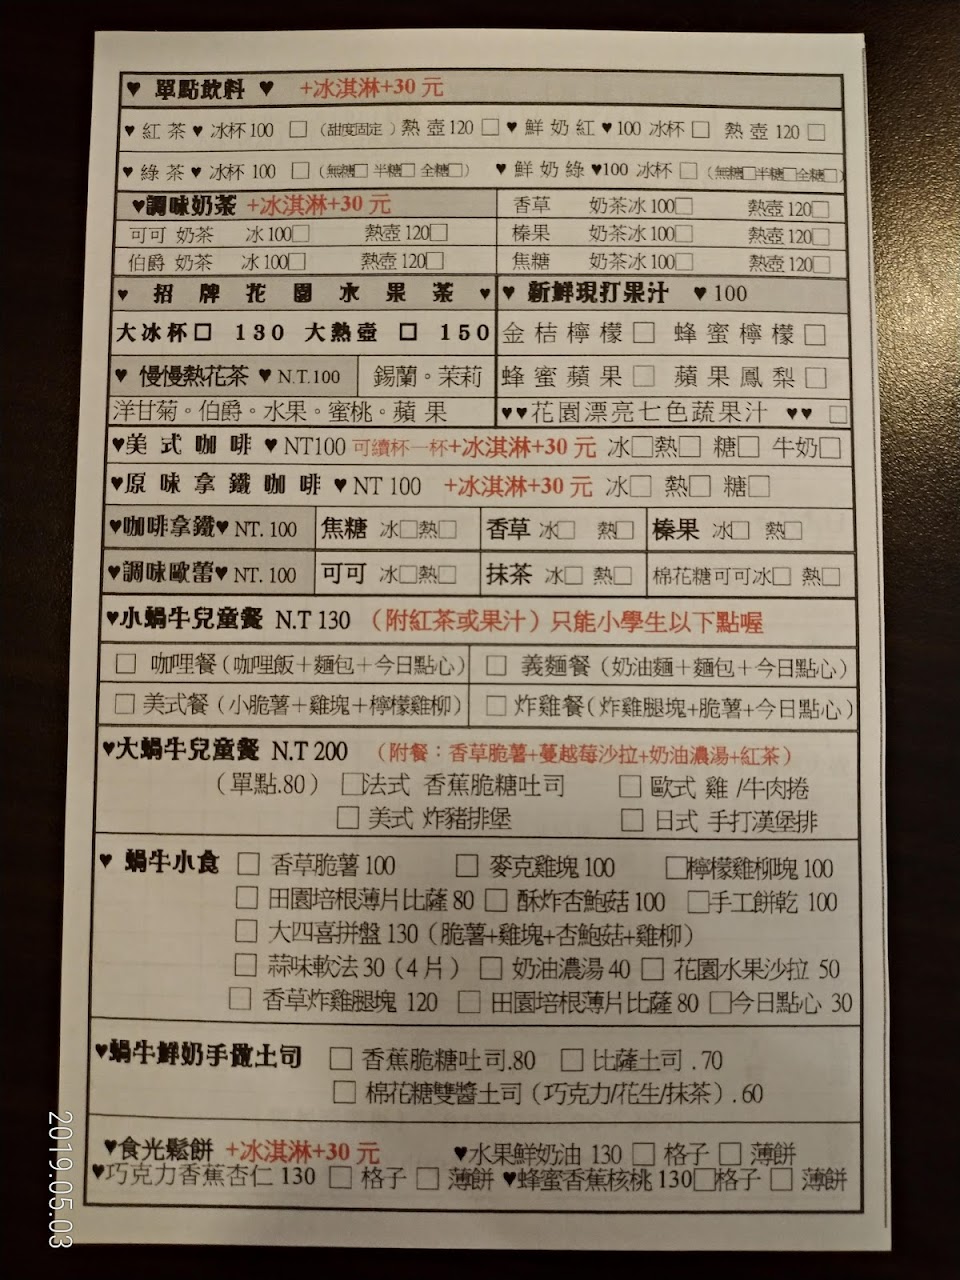 ♥ 單點飲料 ♥ +冰淇淋+30 元
♥ 紅 茶 ♥ 冰杯 100 □ (甜度固定) 熱 壺 120 □ ♥ 鮮 奶 紅 ♥100 冰杯 □ 熱 壺 120 □
♥ 綠 茶 ♥ 冰杯 100 □ (無糖□ 半糖□ 全糖□) ♥ 鮮 奶 綠 ♥100 冰杯 □ (無糖□半糖□全糖□)
♥調味奶茶 +冰淇淋+30 元
香草 奶茶冰 100□ 熱壺 120□
可可 奶茶 冰 100□ 熱壺 120□
榛果 奶茶冰 100□ 熱壺 120□
伯爵 奶茶 冰 100□ 熱壺 120□
焦糖 奶茶冰 100□ 熱壺 120□
♥ 招 牌 花 園 水 果 茶 ♥
♥ 新鮮現打果汁 ♥ 100
大冰杯□ 130 大熱壺 □ 150
金 桔 檸 檬 □ 蜂 蜜 檸 檬 □
♥ 慢慢熱花茶 ♥ N.T.100 錫蘭。茉莉
蜂 蜜 蘋 果 □ 蘋 果 鳳 梨 □
洋甘菊。伯爵。水果。蜜桃。蘋 果
♥♥花園漂亮七色蔬果汁 ♥♥ □
♥美 式 咖 啡 ♥ NT100 可續杯一杯+冰淇淋+30 元 冰□熱□ 糖□ 牛奶□
♥原 味 拿 鐵 咖 啡 ♥ NT 100 +冰淇淋+30 元 冰□ 熱□ 糖□
♥咖啡拿鐵♥ NT. 100 焦糖 冰□熱□ 香草 冰□ 熱□ 榛果 冰□ 熱□
♥調味歐蕾♥ NT. 100 可可 冰□熱□ 抹茶 冰□ 熱□ 棉花糖可可冰□ 熱□
♥小蝸牛兒童餐 N.T 130 (附紅茶或果汁) 只能小學生以下點喔
□ 咖哩餐 (咖哩飯+麵包+今日點心) □ 義麵餐 (奶油麵+麵包+今日點心)
□ 美式餐 (小脆薯+雞塊+檸檬雞柳) □ 炸雞餐 (炸雞腿塊+脆薯+今日點心)
♥大蝸牛兒童餐 N.T 200 (附餐：香草脆薯+蔓越莓沙拉+奶油濃湯+紅茶)
(單點.80) □法式 香蕉脆糖吐司 □ 歐式 雞 /牛肉捲
□ 美式 炸豬排堡 □ 日式 手打漢堡排
♥ 蝸牛小食 □ 香草脆薯 100 □ 麥克雞塊 100 □檸檬雞柳塊 100
□ 田園培根薄片比薩 80 □ 酥炸杏鮑菇 100 □手工餅乾 100
□ 大四喜拼盤 130 (脆薯+雞塊+杏鮑菇+雞柳)
□ 蒜味軟法 30 (4 片) □ 奶油濃湯 40 □ 花園水果沙拉 50
□ 香草炸雞腿塊 120 □ 田園培根薄片比薩 80 □今日點心 30
♥蝸牛鮮奶手做土司 □ 香蕉脆糖吐司.80 □ 比薩土司 .70
□ 棉花糖雙醬土司 (巧克力/花生/抹茶) .60
♥食光鬆餅 +冰淇淋+30 元 ♥水果鮮奶油 130 □ 格子 □ 薄餅
♥巧克力香蕉杏仁 130 □ 格子 □ 薄餅 ♥蜂蜜香蕉核桃 130□格子 □ 薄餅
2019.05.03